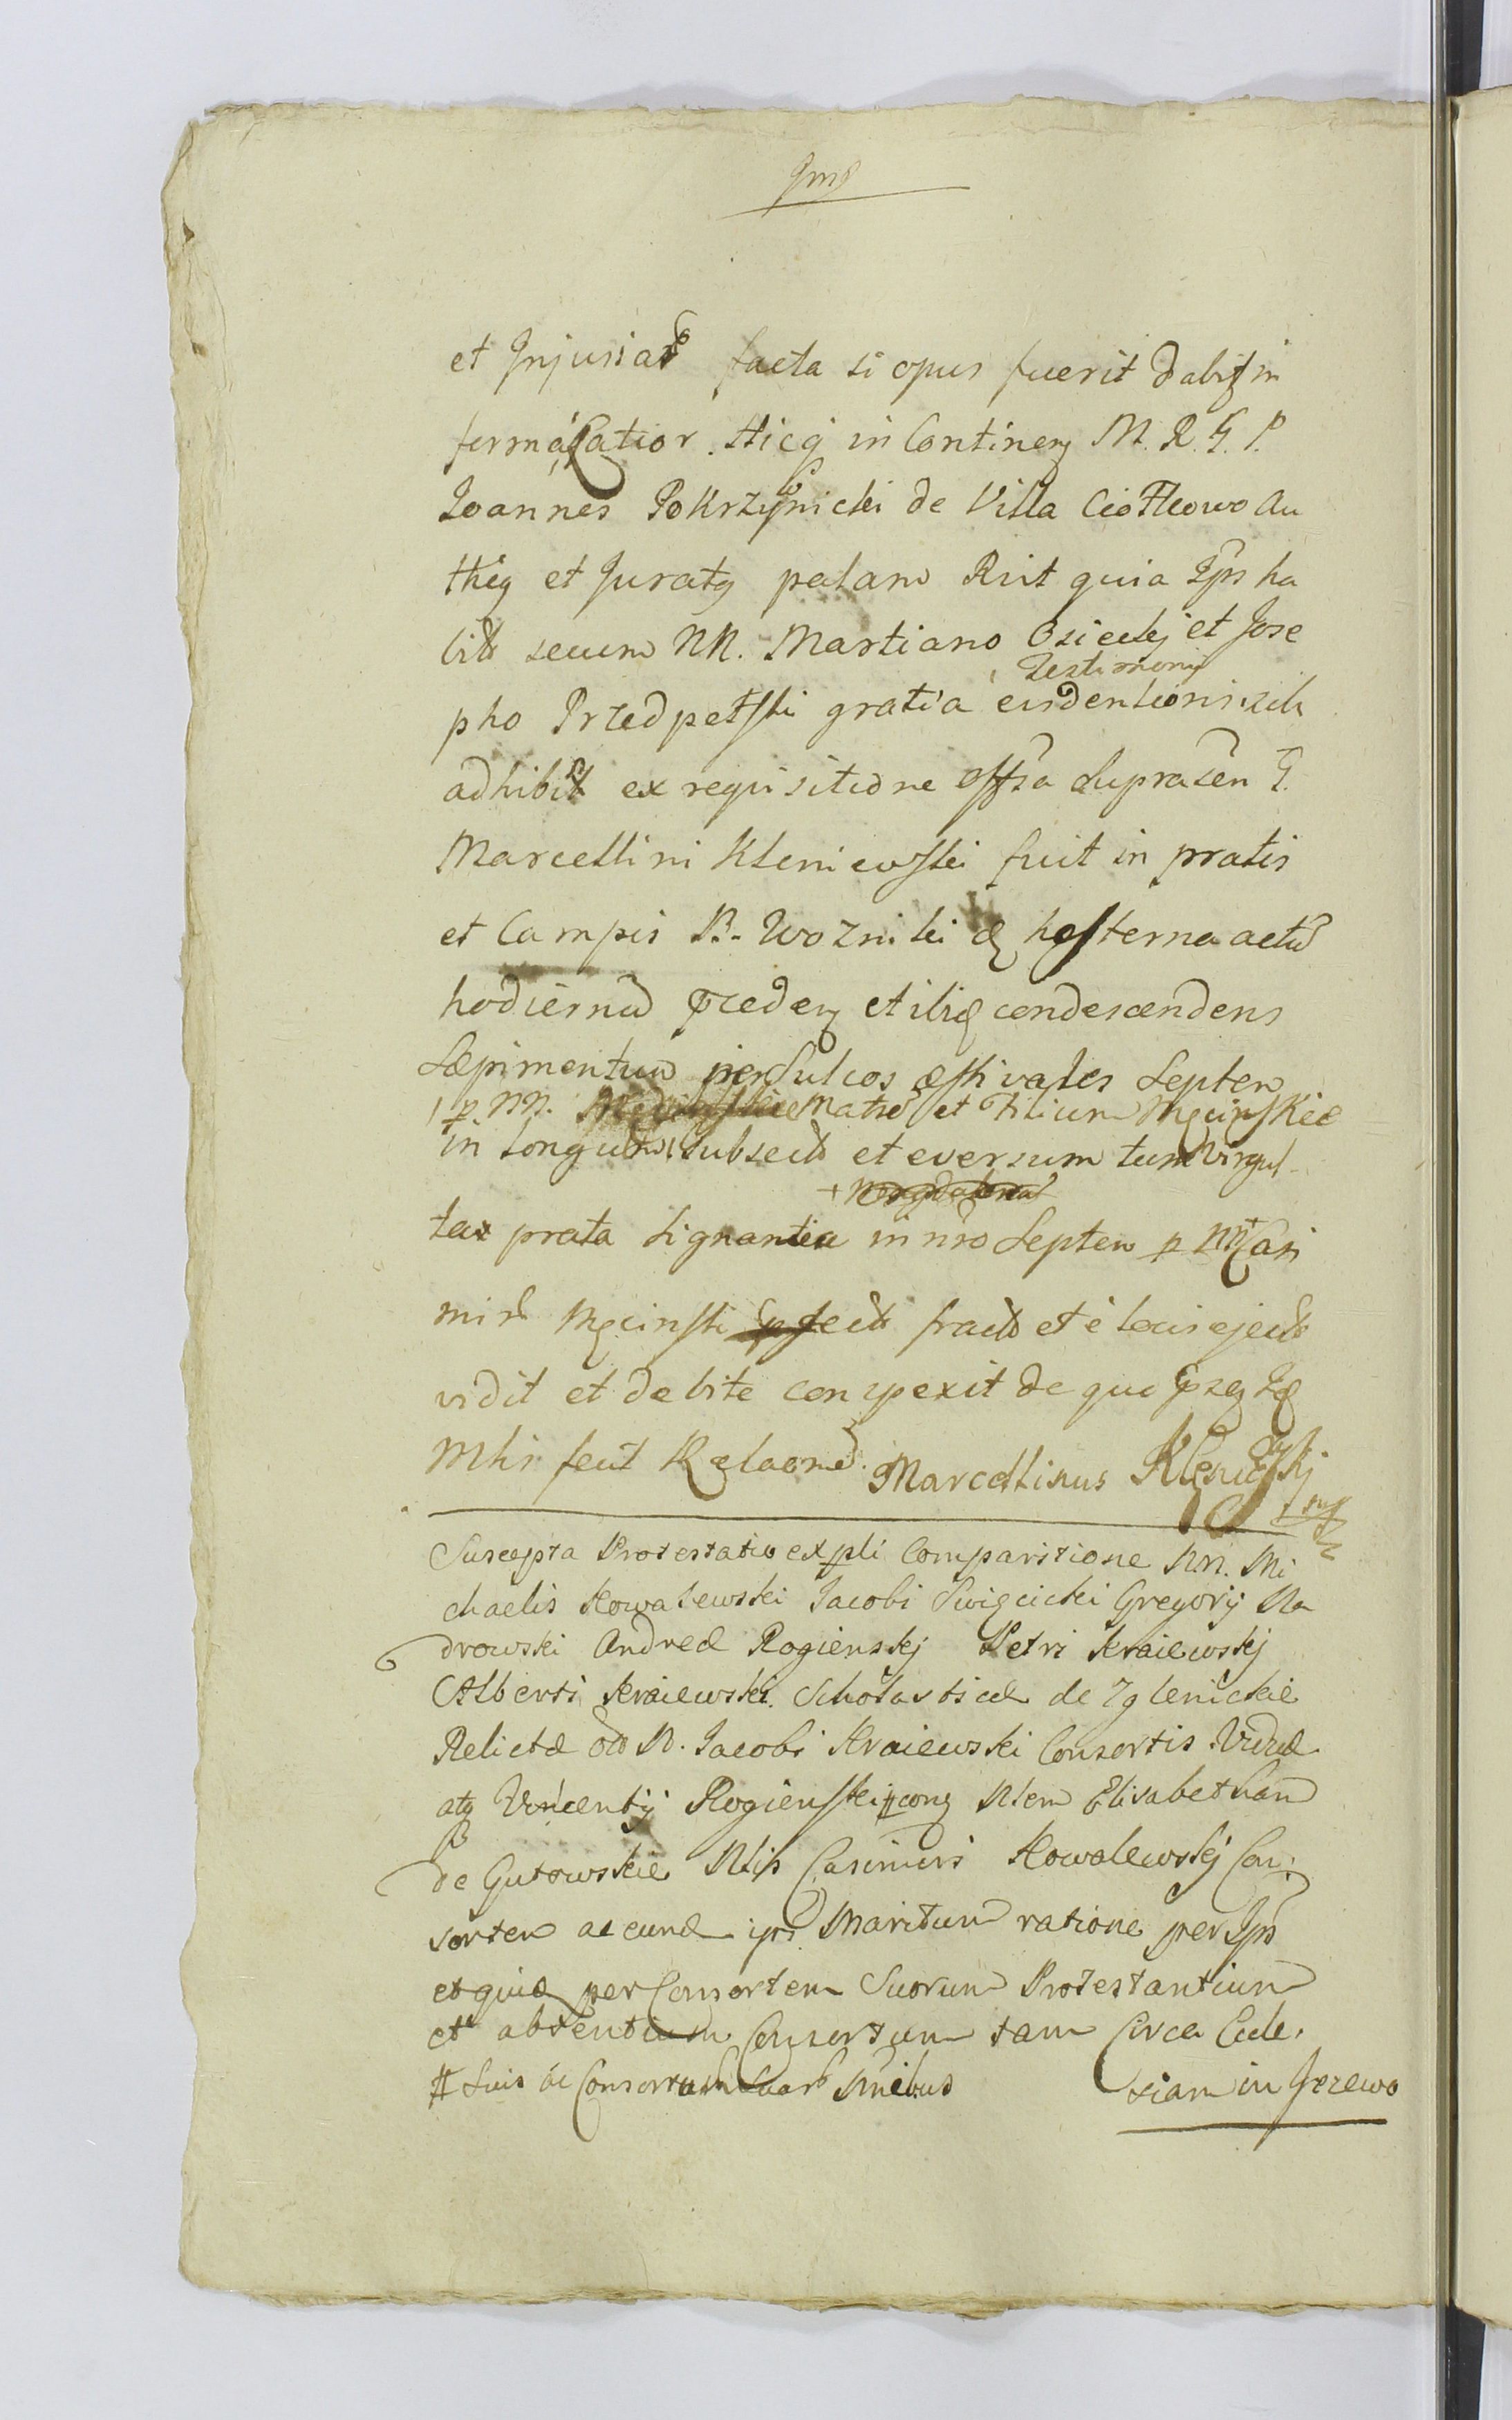 et Injuriar facta si opus fuerit dabit in
forma Latior. Hicq in Continen M. R. G. P.
Joannes Pokrzywnicki de Villa Ciołkowo Au
theg et Juratq palam Rvit quia Ips ha
bit secum NN. Martiano Osiecki et Jose
Testimonij
pho Przedpełski gratia evidentioris sibi
adhibit ex requisitione Offsa Suprascen G.
Marcellini Kleniewski fuit in pratis
et Campis B. Wozniki hesterna actu
hodiernu prceden et ibiq condescendens
Sæpimentum per Sulcos æstivales Septem
p NN. Matre et Filium Męcinskie
in Longum subsect et eversum tum Virgul
tax prata Signantia in nro Septem p NN Casi
miru Męcinski fract et e locis eject
vidit et debite conspexit de quo
mhi fecit Relaone. Marcellinus Kleniewski
mp
Suscepta Protestatio ex psli Comparitione NN. Mi
chaelis Kowalewski Jacobi Swięcicki Gregorij Na
drowski Andreæ Rogienskj Petri Kraiewskj
Alberti Kraiewski Scholasticæ de Iglenickie
Relictæ olo N. Jacobi Kraiewski Consortis Viduæ
atq Vincentij Rogienski pcong Nlem Elisabetham
de Gutowskie Nlis Casimiri Kowalewskj Con:
sortem ac eund ips Maritum ratione per Ips
et quid per Consortem Suorum Protestantium
et absentium Consortum tam Circa Eccle:
# Suis ac Consortum Suar Nnibus siam in Jezewo